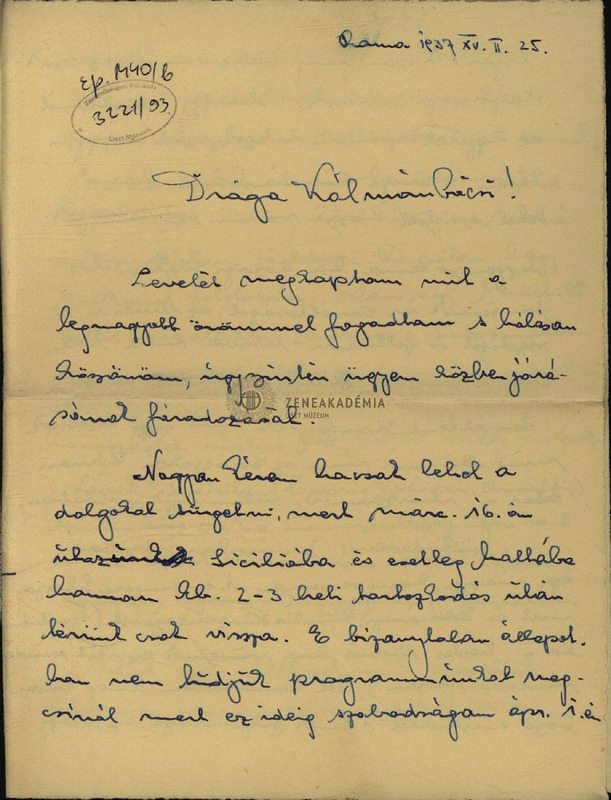 Roma 1937 XV. II. 25.
Ep. M40/b
Zeneművészeti Főiskola
3221/93
Liszt Múzeum
Draga Kálmán bácsi!
Levelét megkaptam mit a
legnagyobb örömmel fogadtam s hálásan
köszönöm, úgyszintén ügyem közbenjárá-
sának fáradozását.
ZENEAKADÉMIA
LISZT MÚZEUM
Nagyon kérem ha csak lehet a
dolgokat sürgetni, mert márc. 16.án
utazunk Siciliába és esetleg Maltába
honnan kb. 2-3 heti tartozkodás után
térünk csak vissza. E bizonytalan állapot-
ban nem tudjuk programmünket meg-
csinálni mert ez ideig szabadságom ápr. 1.én